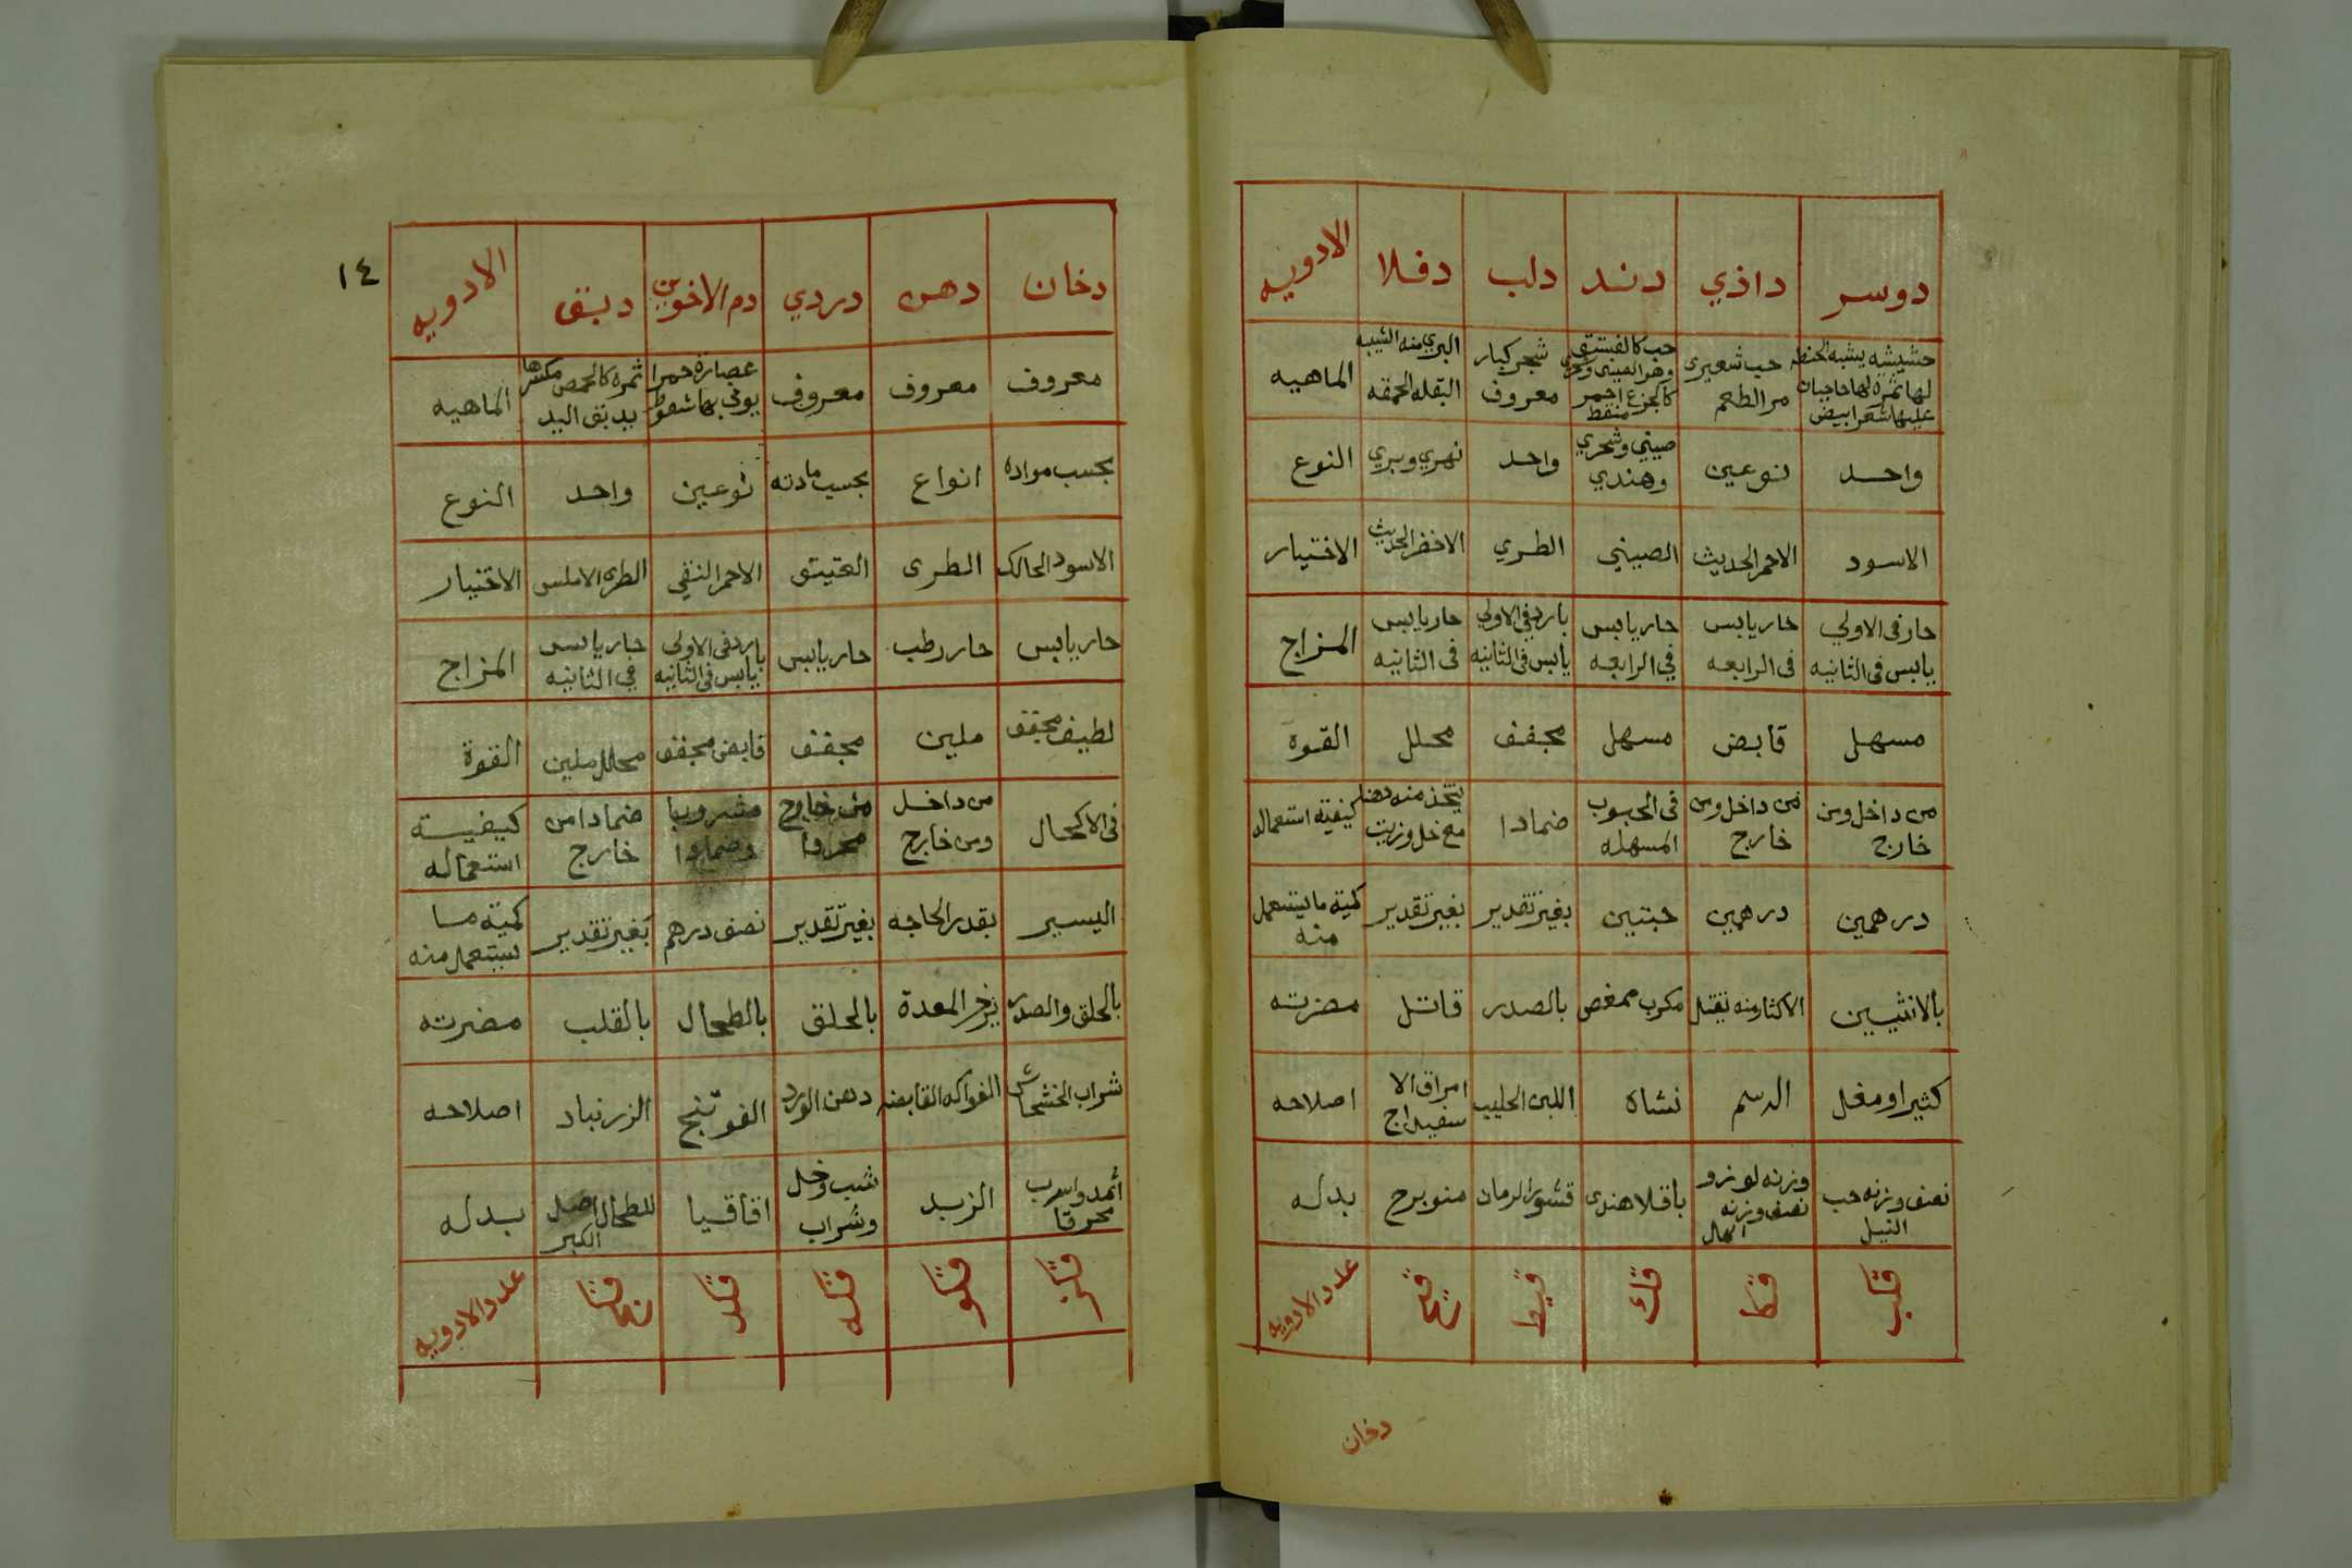 دوسر داذي دند دلب دفلا الادويه
حشيشه يشبه الحنطه لها ثمرة لها حاجبان عليها شعر ابيض
حب شعيرى مر الطعم
حب كالفستق وهو الصينى كالجزع احمر منقط
شجر كبار معروف
البري منه الشبيه البقله الحمقه
الماهيه
واحد نوعين صيني وشحري وهندي واحد نهري وبري النوع
الاسود الاحمر الحديث الصيني الطري الاخضر الحديث الاختيار
حار فى الاولي يابس فى الثانيه
حار يابس فى الرابعه
حار يابس في الرابعه
بارد في الاولي يابس فى الثانيه
حار يابس فى الثانيه
المزاج
مسهل قابض مسهل مجفف محلل القوه
من داخل ومن خارج
من داخل ومن خارج
فى الحبوب المسهله
ضمادا
يتخذ منه دهنا مع خل وزيت
كيفية استعماله
درهمين درهمين حبتين بغير تقدير بغير تقدير كمية ما يستعمل منه
بالانثيين الاكثار منه يقتل مكرب ممغص بالصدر قاتل مضرته
كثيرا ومغل الدسم نشاه اللبن الحليب امراق الا سفيداج اصلاحه
نصف وزنه حب النيل
وزنه لوز و نصف وزنه
باقلا هندى
قشور الرمان
منوبرح
بدله
قكب قكا قك قيط قيح عدد الادويه
دخان
١٤
دخان دهن دردي دم الاخوين دبق الادويه
معروف معروف معروف
عصارة حمرا يوتى بها من سقوطر
ثمره كالحمص مكسرها يدبق اليد
الماهيه
بحسب مواده انواع بحسب مادته نوعين واحد النوع
الاسود الحالك الطرى العتيق الاحمر النقي الطرى الاملس الاختيار
حار يابس حار رطب حار يابس
بارد فى الاولى يابس فى الثانيه
حار يابس في الثانيه
المزاج
لطيف مجفف ملين مجفف قابض مجفف محلل ملين القوة
فى الاكحال
من داخل ومن خارج
من خارج محروا
مشروبا وضمادا
ضمادا من خارج
كيفية استعماله
اليسير بقدر الحاجه بغير تقدير نصف درهم بغير تقدير كمية ما يستعمل منه
بالحلق والصدر يرخى المعدة بالحلق بالطحال بالقلب مضرته
شراب الخشخاش الفواكه القابضه دهن الورد الفوتنج الزرنباد اصلاحه
أثمد واسرب محرقا
الزبد
شب وخل وشراب
اقاقيا
للطحال اصل الكبر
بدله
قلز قلو قله قلد عدد الادويه